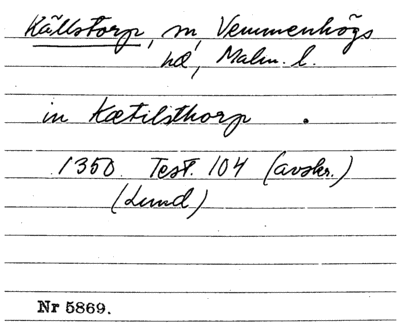 Källstorp, sn, Vemmenhögs
hd, Malm. l.
in Kætilsthorp .
1350 Test. 104 (avskr.)
(Lund)
Nr 5869.